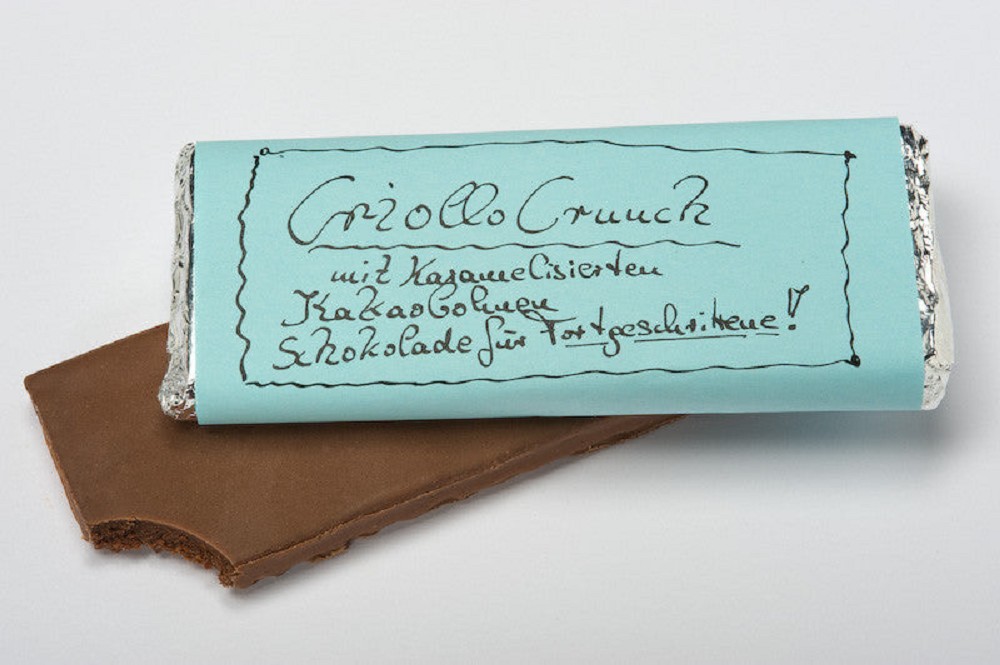 Criollo Crunch
mit Karamelisierten
Kakaobohnen
Schokolade für Fortgeschrittene!